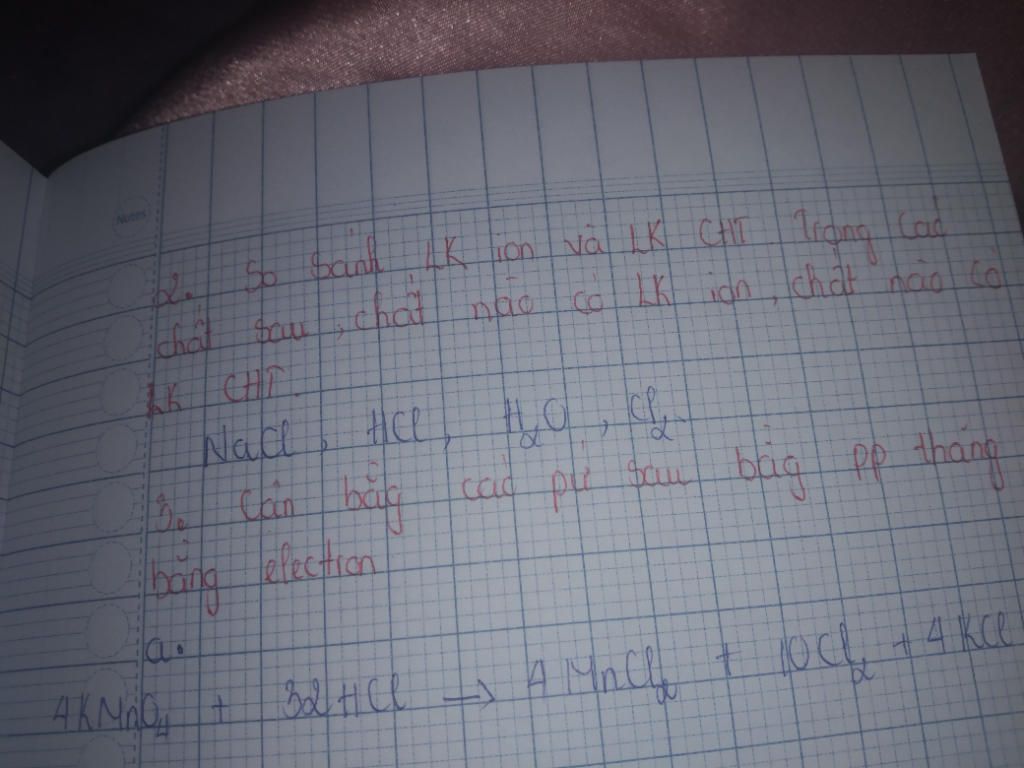 Notes
2. So sánh LK ion và LK CHT. Trong các
chất sau, chất nào có LK ion, chất nào có
LK CHT.
NaCl, HCl, H₂O, Cl₂.
3. Cân bằg các pứ sau bằg pp thăng
bằng election
a.
4KMnO₄ + 32HCl → 4MnCl₂ + 10Cl₂ + 4KCl